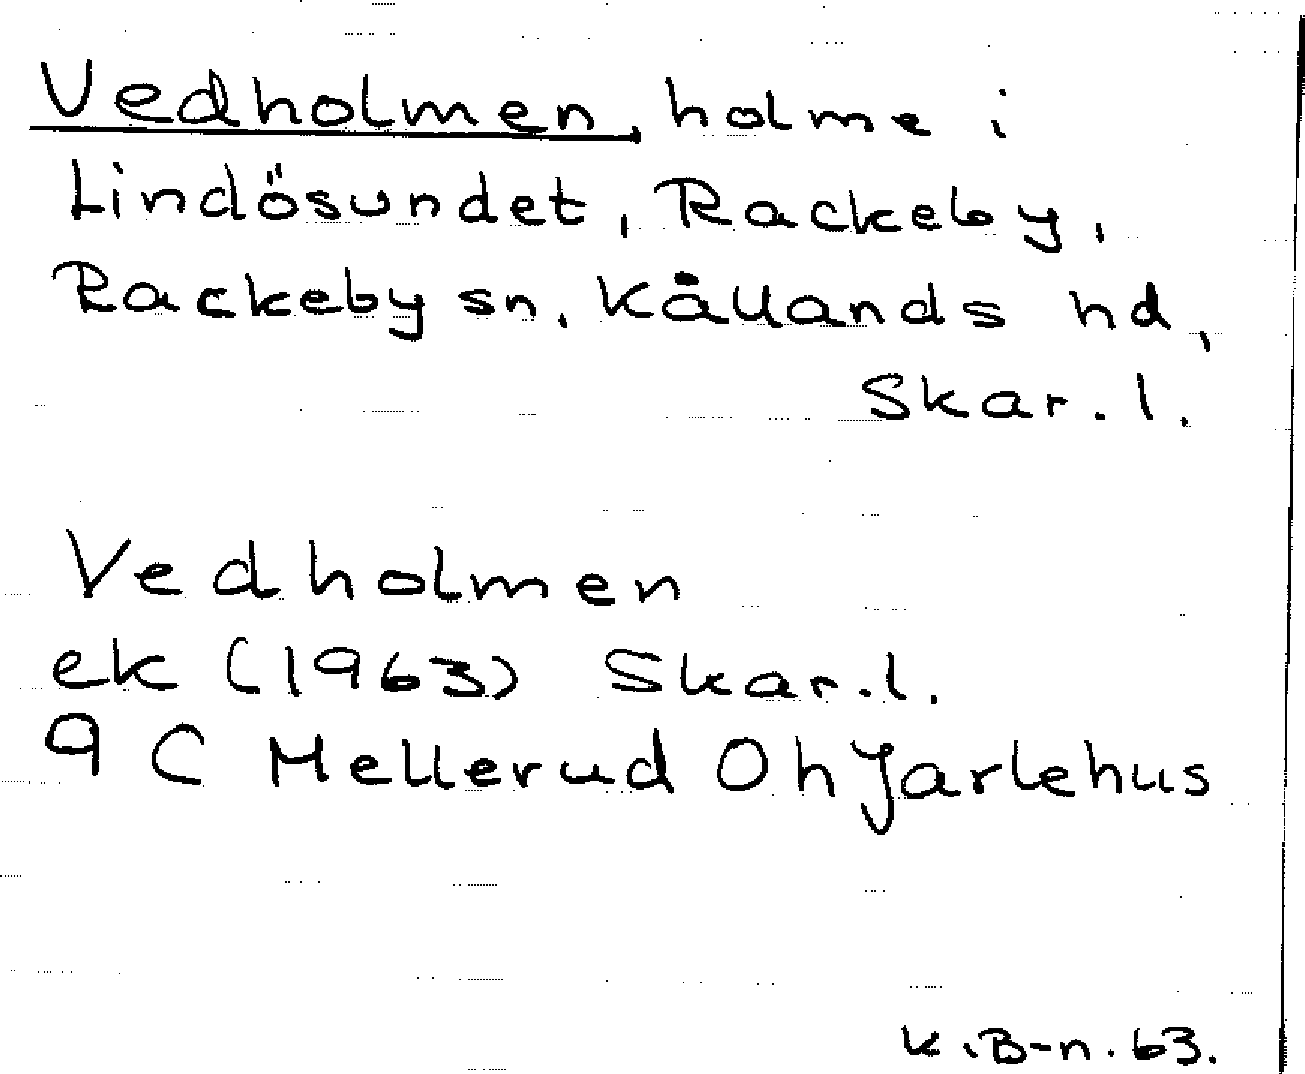 Vedholmen, holme i
Lindösundet, Rackeby,
Rackeby sn, Kållands hd,
Skar. l.
Vedholmen
ek (1963) Skar. l.
9 C Mellerud Oh Jarlehus
K. B-n. 63.